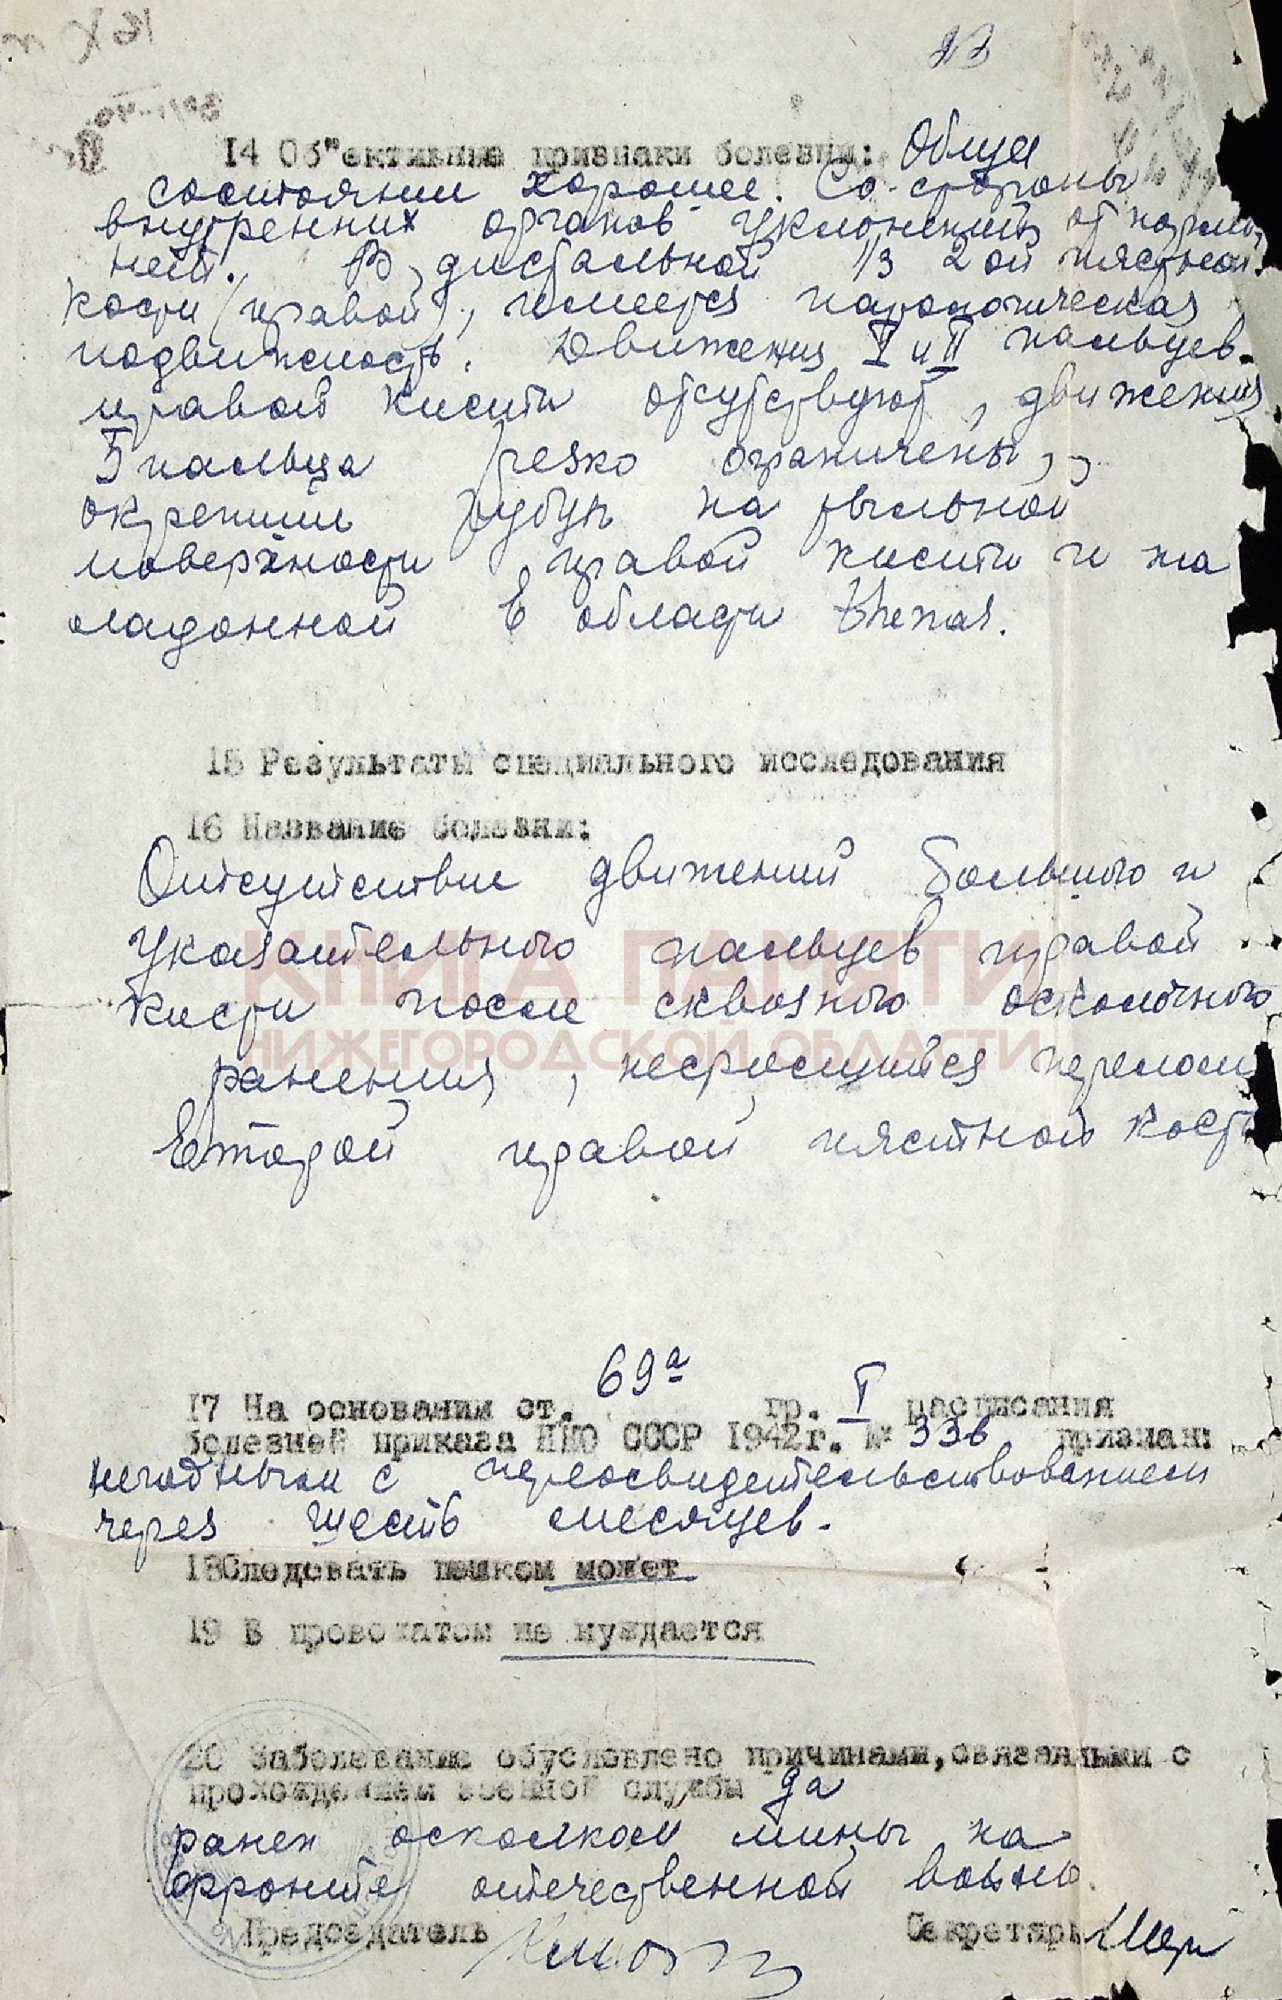 23
14 Об"ективные признаки болезни: Общее
состояние хорошее. Со стороны
внутренних органов уклонений от нормы
нет. В дистальной 1/3 2ой пястной
кости (правой), имеется патологическая
подвижность. Движения I и II пальцев
правой кисти отсутствуют, движения
5 пальца резко ограничены,
окрепший рубец на тыльной
поверхности правой кисти и на
ладонной в области thenar.
15 Результаты специального исследования
16 Название болезни:
Отсутствие движений большого и
указательного пальцев правой
КНИГА ПАМЯТИ
кисти после сквозного осколочного
НИЖЕГОРОДСКОЙ ОБЛАСТИ
ранения, несросшийся перелом
второй правой пястной кости
17 На основании ст. 69а гр. I расписания
болезней приказа НКО СССР 1942г. № 336 признан:
негодным с переосвидетельствованием
через шесть месяцев.
18 Следовать пешком может
19 В провожатом не нуждается
20 Заболевание обусловлено причинами, связанными с
прохождением военной службы да
ранен осколком мины на
фронте отечественной войны.
Председатель Секретарь